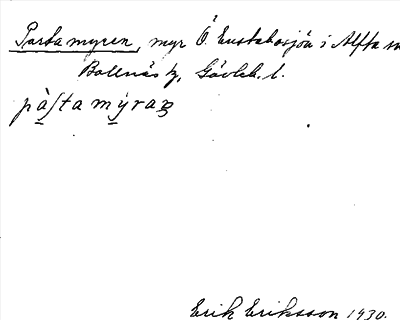 Partamyren, myr Ö. Eustabosjön i Alfta sn
Bollnäs tg, Gävleb. l.
pàʃtamýran
Erik Eriksson 1930.